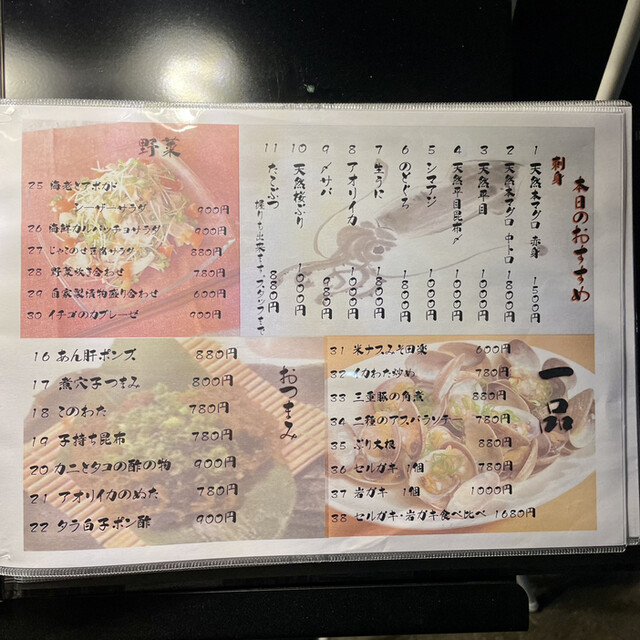 本日のおすすめ
刺身
1 天然本マグロ 赤身 1500円
2 天然本マグロ 中トロ 1800円
3 天然平目 1000円
4 天然平目昆布〆 1100円
5 シマアジ 1000円
6 のどぐろ 1800円
7 生うに
8 アオリイカ 1000円
9 〆サバ 900円
10 天然桜ぶり 1000円
11 たこぶつ 880円
握りも出来ます。スタッフまで
野菜
25 海老とアボカド
シーザーサラダ 900円
26 海鮮カルパッチョサラダ 900円
27 じゃこのせ豆腐サラダ 880円
28 野菜炊き合わせ 780円
29 自家製漬物盛り合わせ 600円
30 イチゴのカプレーゼ 900円
おつまみ
16 あん肝ポンズ 880円
17 煮穴子つまみ 800円
18 このわた 780円
19 子持ち昆布 780円
20 カニとタコの酢の物 900円
21 アオリイカのめた 780円
22 タラ白子ポン酢 900円
一品
31 米ナスみそ田楽 600円
32 イカわた炒め 780円
33 三重豚の角煮 880円
34 二種のアスパランチー 780円
35 ぶり大根 880円
36 セルガキ 1個 780円
37 岩ガキ 1個 1000円
38 セルガキ・岩ガキ食べ比べ 1680円